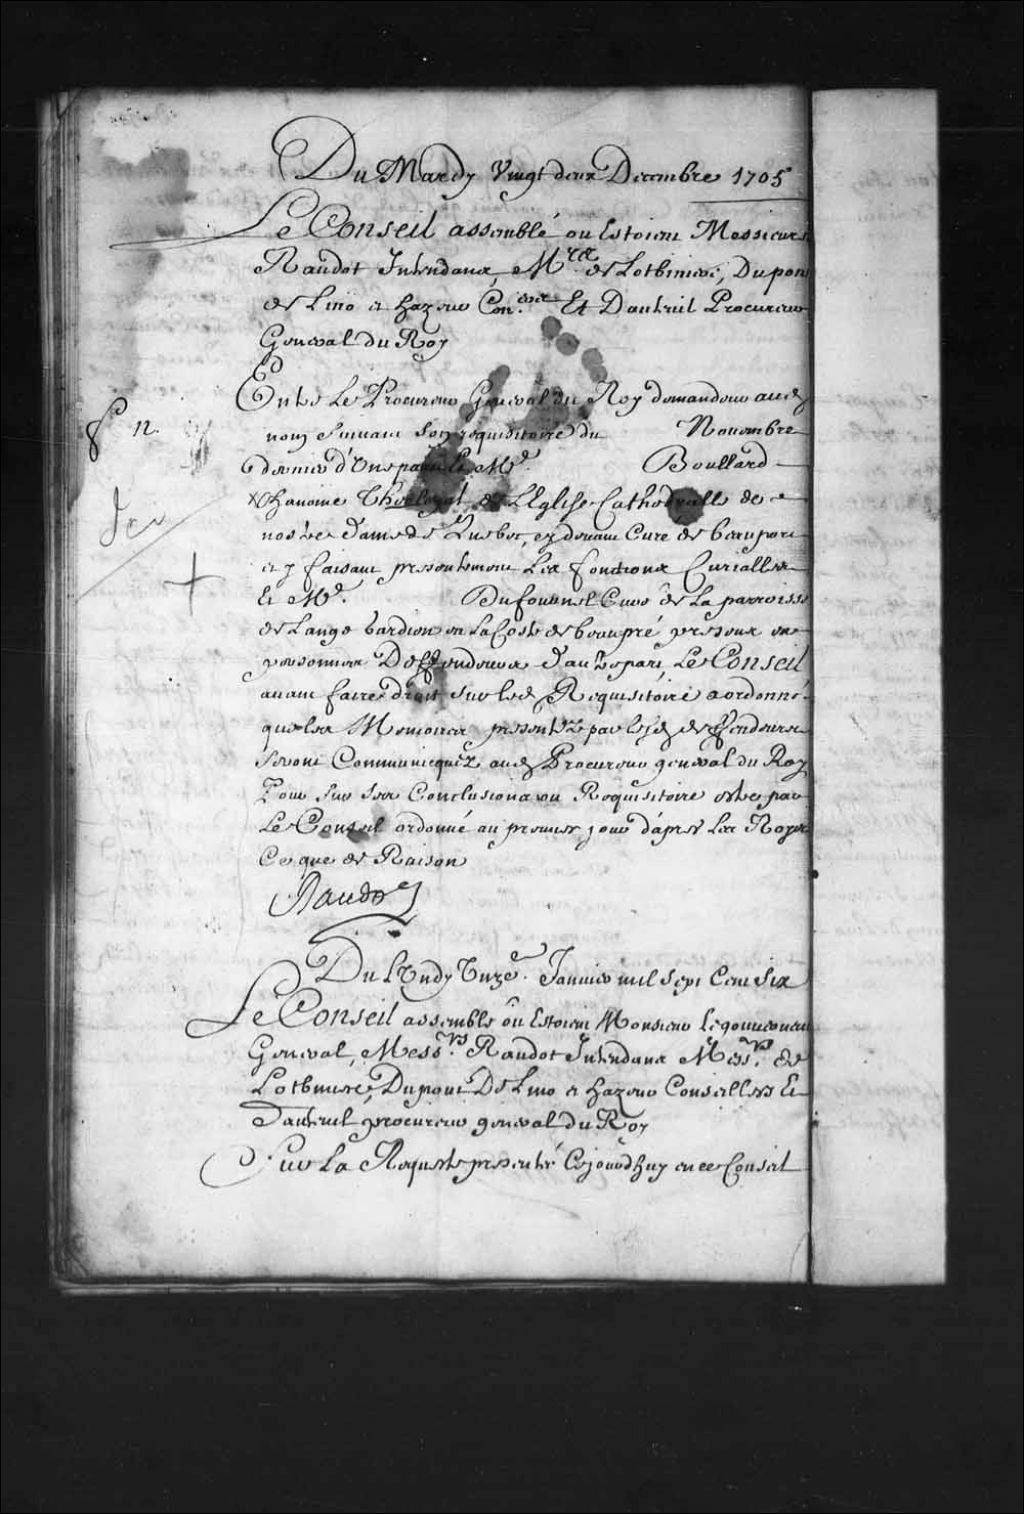 Du Mardy Vingt deux Decembre 1705
Le Conseil assemblé ou Estoient Messieurs
Raudot Intendant, Mre de Lotbiniere, Dupont
de Lino et hazeur Con.ers Et Dauteuil Procureur
General du Roy
Entre Le Procureur General du Roy demandeur aud
nom suivant son requisitoire du Novembre
dernier d'Une part Et Me. Boullard
Chanoine Theologal de L'Eglise Cathedralle de
nostre dame de Quebec, cy devant Curé de beauport
et y faisant presentement Les fonctions Curialles
Et Me. Dufournel Curé de La parroisse
de Lange Gardien en La Coste de beaupré presens en
personnes Deffendeurs d'autre part, Le Conseil
avant faire droit sur led Requisitoire a ordonné
que les Memoires presentez par lesd deffendeurs
seront Communicquez aud Procureur general du Roy
Pour sur ses Conclusions ou Requisitoire estre par
Le Conseil ordonné au premier jour d'apres Les Roys
Ce que de Raison
Raudot
Du Lundy Unze.e Janvier mil sept Cent six
Le Conseil assemblé où Estoient Monsieur Le gouverneur
General, Mess.rs Raudot Intendant Mess.rs de
Lotbiniere, Dupont De Lino et hazeur Conseillers Et
Dauteuil procureur general du Roy
Sur La Requeste presentée Cejourdhuy en ce Conseil